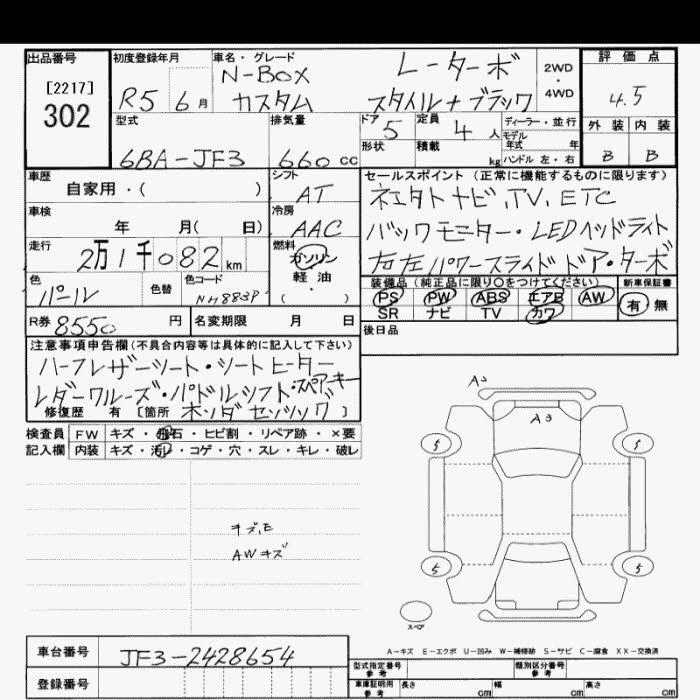 出品番号
[2217]
302
初度登録年月
R5 6月
車名・グレード
N-BOX
カスタム
L-ターボ
スタイル+ブラック
2WD
・
4WD
評価点
4.5
外装 内装
B B
型式
6BA-JF3
排気量
660 cc
ドア
5
定員
4 人
形状
積載
kg
ディーラー・並行
モデル
年式 年
ハンドル 左・右
車歴
自家用・( )
シフト
AT
車検
年 月( 日)
冷房
AAC
走行
2万1千082 km
燃料
ガソリン
・
軽油
・
( )
色
パール
色替
色コード
NH883P
R券 8550 円
名変期限 月 日
セールスポイント(正常に機能するものに限ります)
ナビ, TV, ETC
バックモニター・LEDヘッドライト
右左パワースライドドア・ターボ
装備品(純正品に限り○をつけてください)
PS PW ABS エアB AW
SR ナビ TV カワ
新車保証書
有・無
後日品
注意事項申告欄(不具合内容等は具体的に記入して下さい)
ハーフレザーシート・シートヒーター
パドルシフト・スペアーキー
修復歴 有 [箇所 ホンダセンシング]
検査員 FW キズ・飛石・ヒビ割・リペア跡・×要
記入欄 内装 キズ・汚レ・コゲ・穴・スレ・キレ・破レ
キズ,E
AWキズ
A2
A3
5
5
5
5
スペア
A-キズ E-エクボ U-凹み W-補修跡 S-サビ C-腐食 XX-交換済
車台番号
JF3-2428654
登録番号
型式指定番号
参考
類別区分番号
参考
車庫証明用
参考
長さ cm 幅 cm 高さ cm